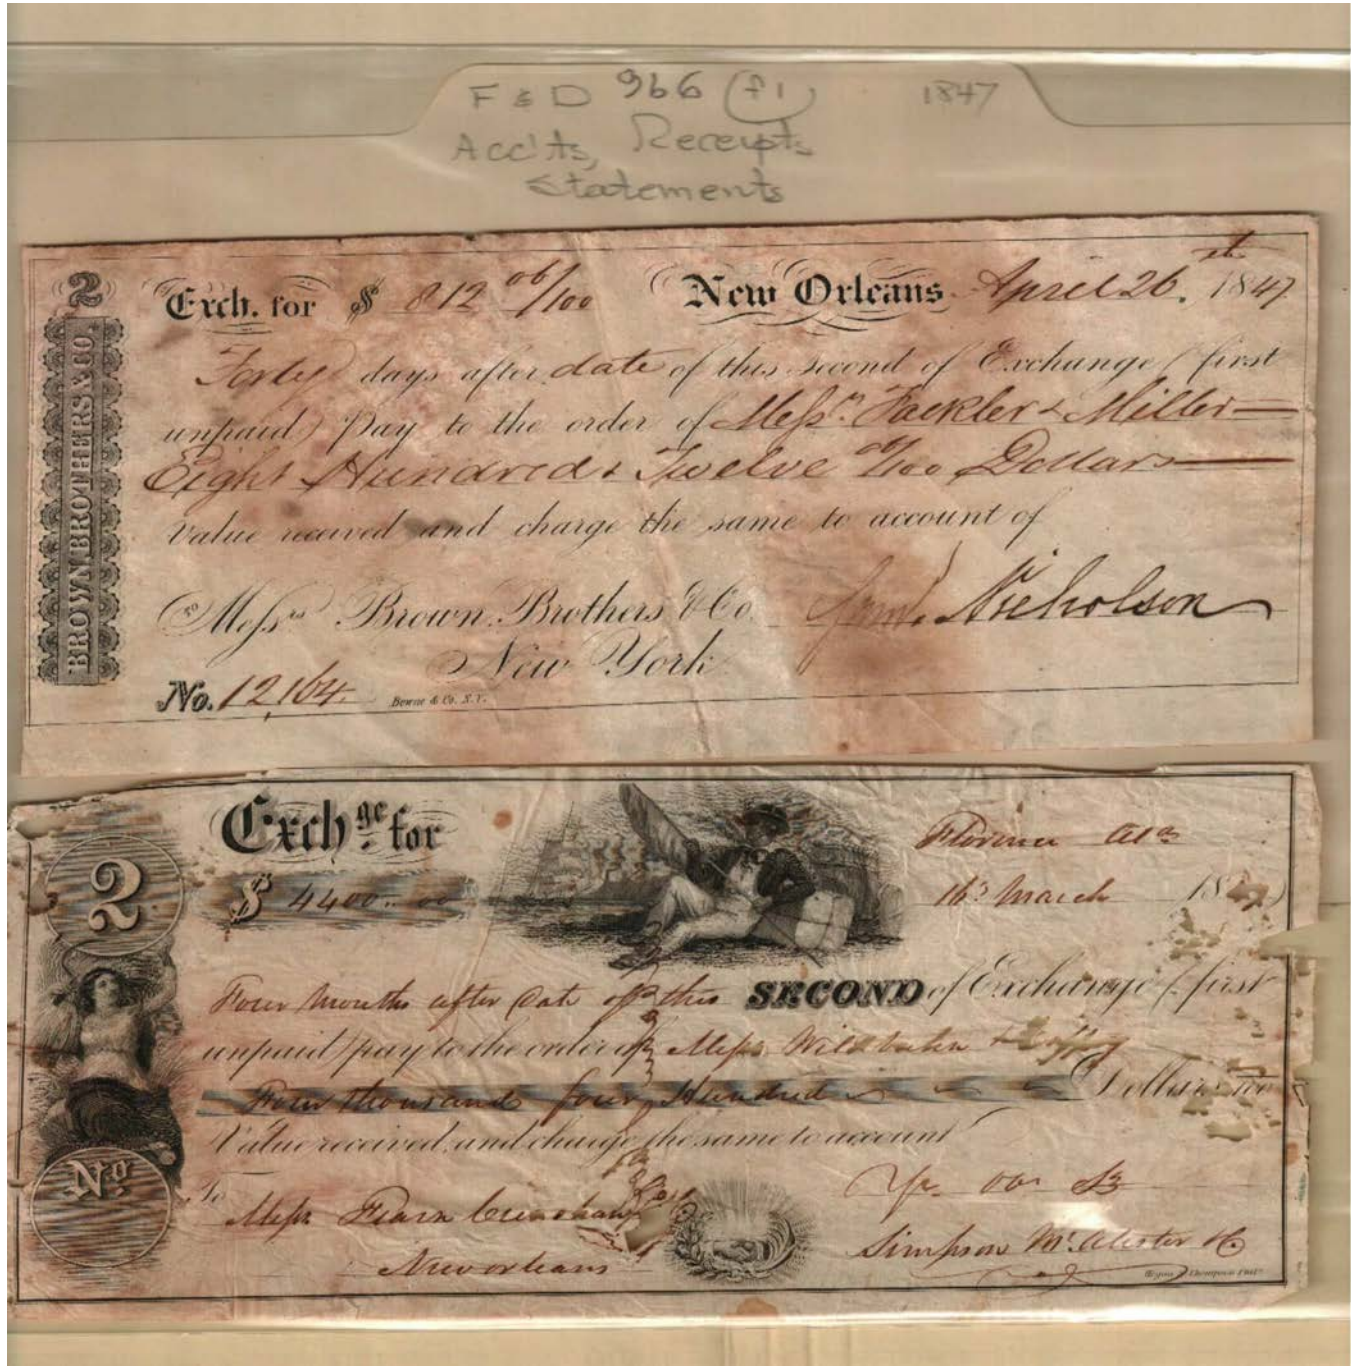 F & D 966 (f1) 1847
Acc'ts, Receipts
Statements
2
BROWN BROTHERS & CO.
Exch. for $ 812 06/100 New Orleans April 26th 1847
Forty days after date of this second of Exchange (first
unpaid) Pay to the order of Messrs. Fackler & Miller
Eight Hundred & Twelve 06/100 Dollars
Value received and charge the same to account of
To Messrs Brown Brothers & Co. Saml. Nicholson
New York
No. 12,164 Bowne & Co. N.Y.
2
Exchge. for
$ 4400.00
Florence Ala
16 March 1847
Four Months after Date of this SECOND of Exchange (first
unpaid) pay to the order of Messrs
Four thousand four Hundred Dollars
Value received and charge the same to account
No
To
Messrs Fearn Crenshaw
New orleans
Yr Obt
Simpson McAlester & Co